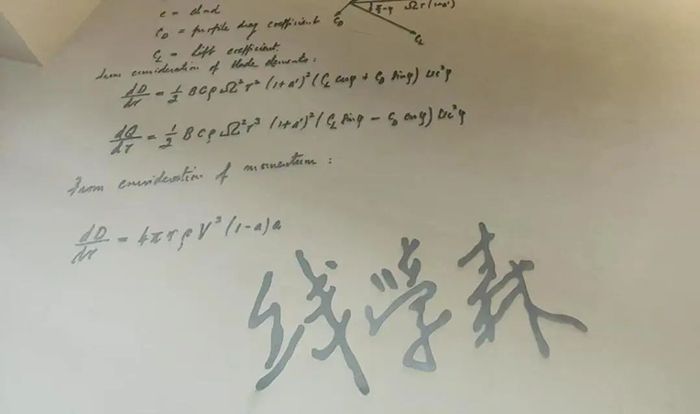 c = chord
C_D = profile drag coefficient
C_L = lift coefficient
C_D
Ωr(1+a')
C_L
From consideration of blade elements:
dD/dr = 1/2 Bcρ Ω²r² (1+a')² (C_L cosφ + C_D sinφ) sec²φ
dQ/dr = 1/2 Bcρ Ω²r³ (1+a')² (C_L sinφ - C_D cosφ) sec²φ
From consideration of momentum:
dD/dr = 4πrρV²(1-a)a
钱学森